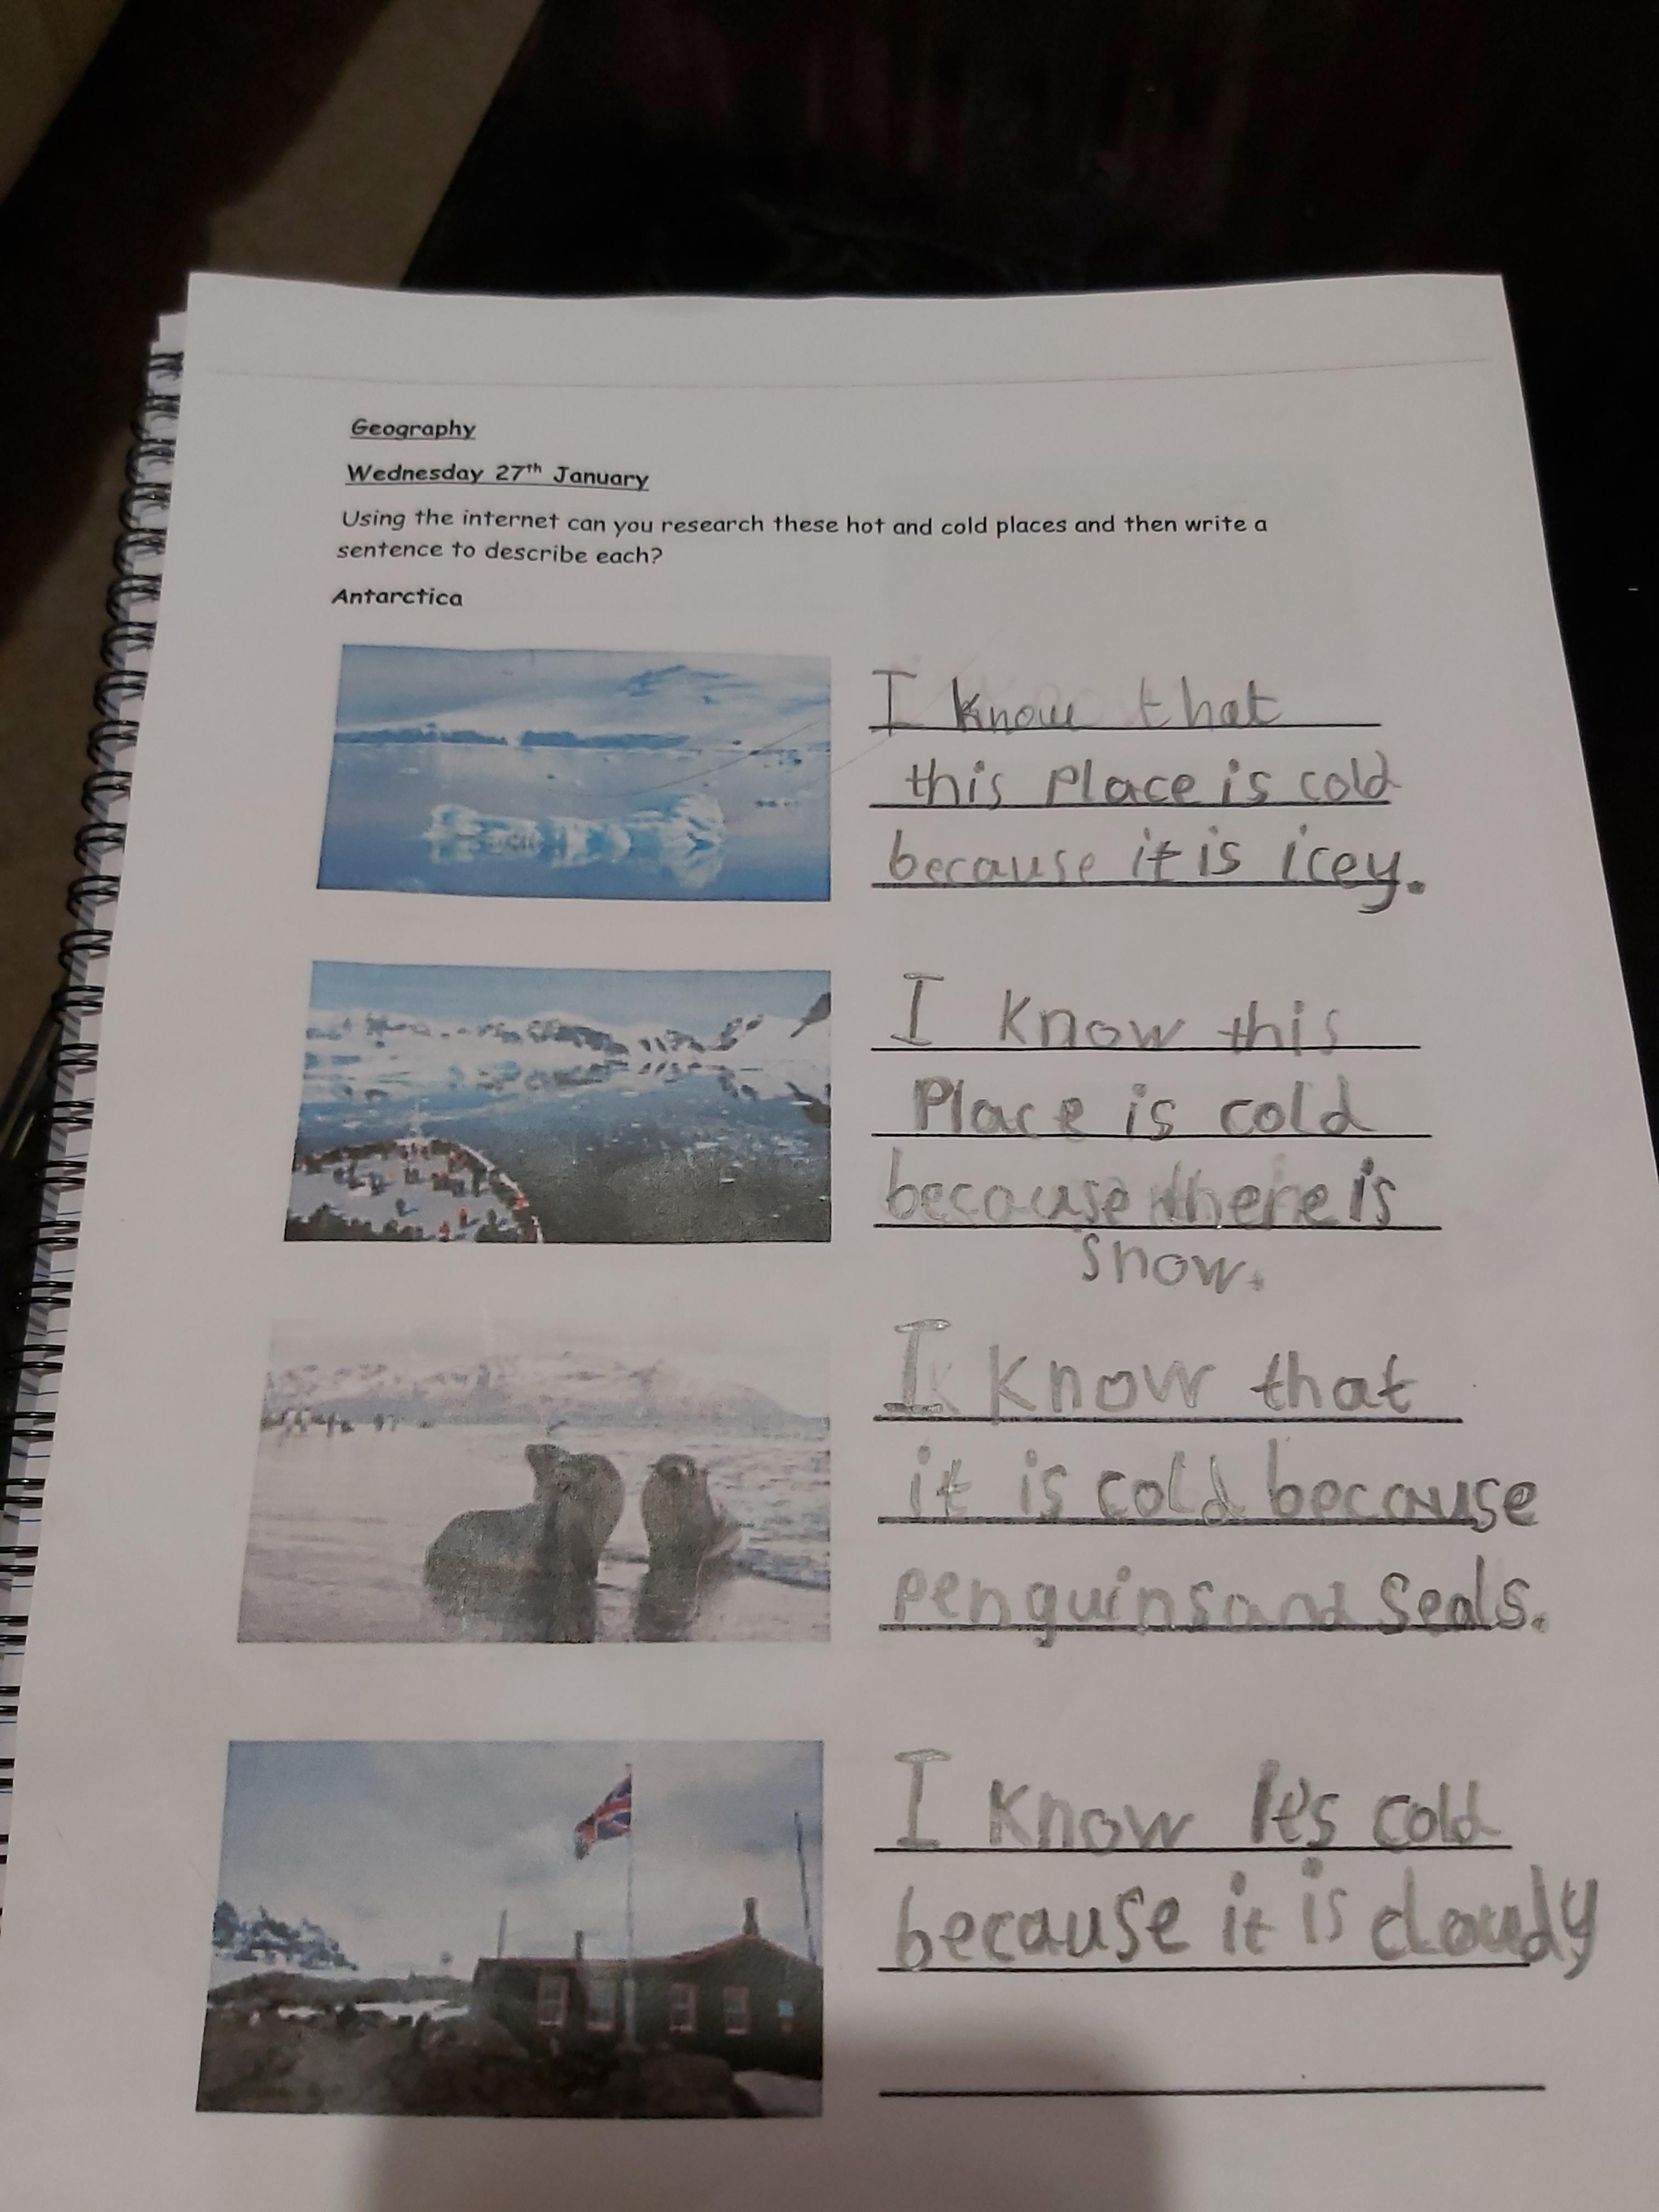 Geography
Wednesday 27th January
Using the internet can you research these hot and cold places and then write a
sentence to describe each?
Antarctica
I know that
this Place is cold
because it is icey.
I know this
Place is cold
because there is
snow.
I know that
it is cold because
penguins and seals.
I know it's cold
because it is cloudy